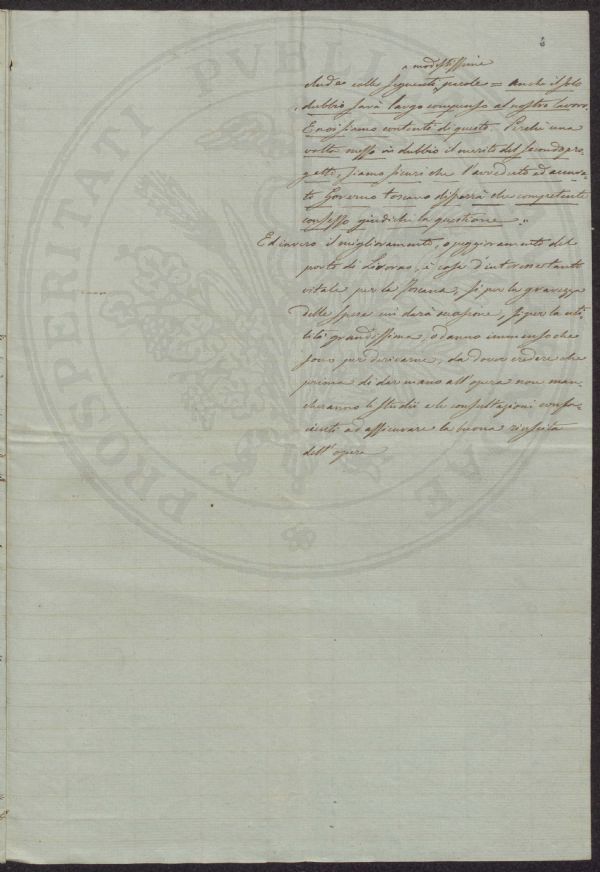 6
modestissime
clude colle seguenti parole = Anche il solo
dubbio sarà largo compenso al nostro lavoro
E noi siamo contenti di questo Perchè una
volta messo in dubbio il merito del secondo pro-
getto, siamo sicuri che l'avveduto ed accura-
to Governo toscano disporrà che competente
consesso giudichi la questione „
Ed invero il miglioramento, o peggioramento del
porto di Livorno, è cosa d'interesse tanto
vitale per la Toscana, sì per la gravezza
delle spese cui darà occasione, sì per la uti
lità grandissima, o danno immenso che
sono per derivarne, da dover credere che
prima di dar mano all'opera non man-
cheranno li studii e le consultazioni suffi-
cienti ad assicurare la buona riuscita
dell'opera
PROSPERITATI PVBLICAE